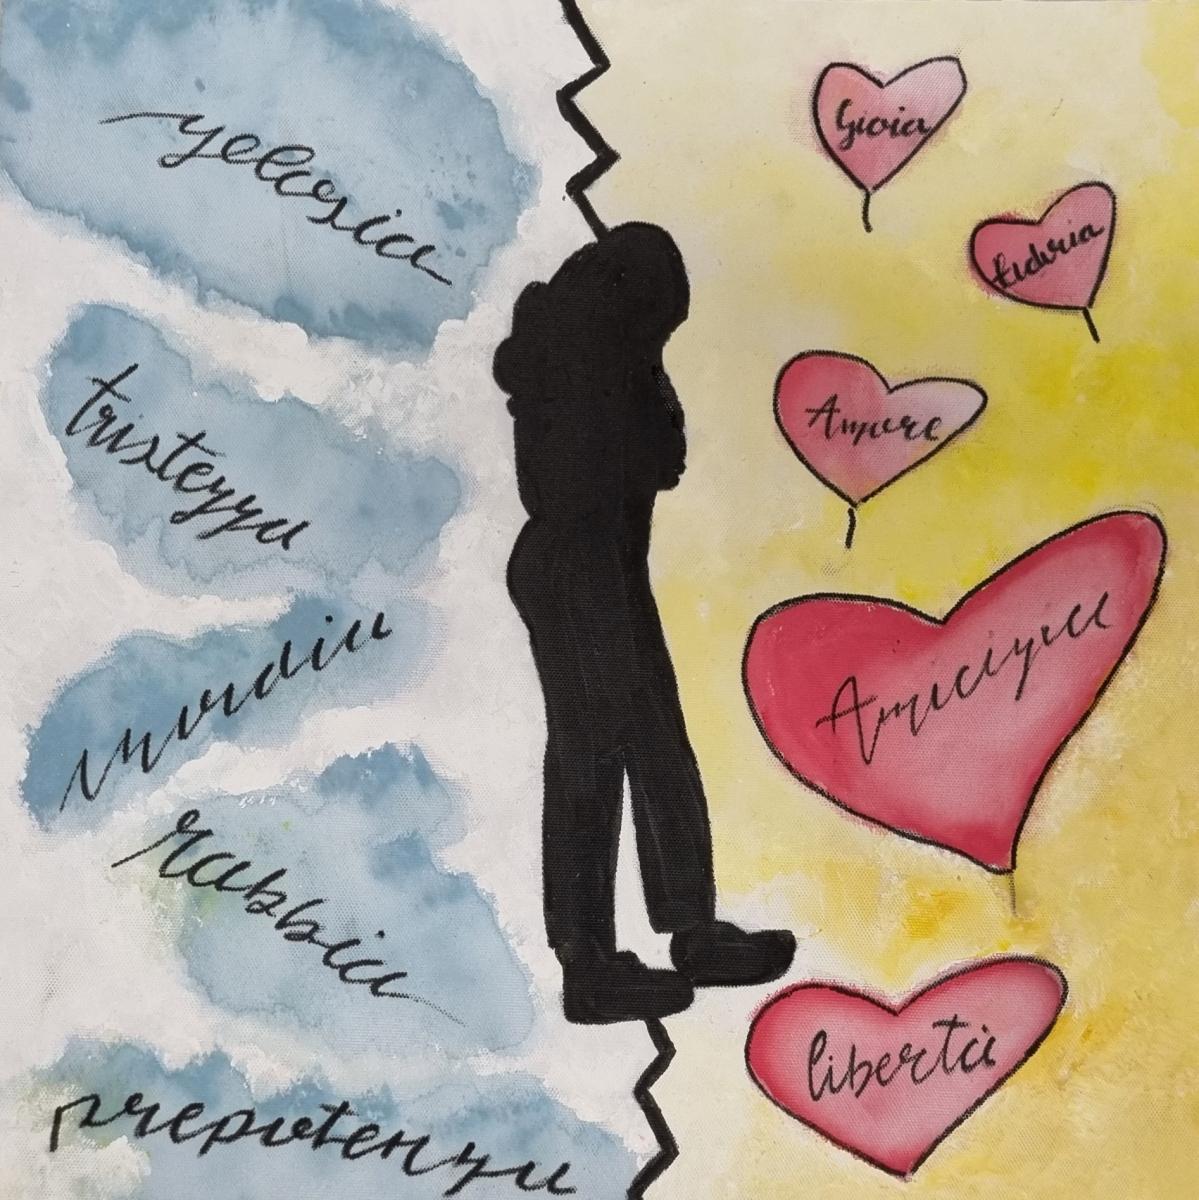 gelosia
tristezza
rabbia
prepotenza
Gioia
Amore
Amicizia
libertà